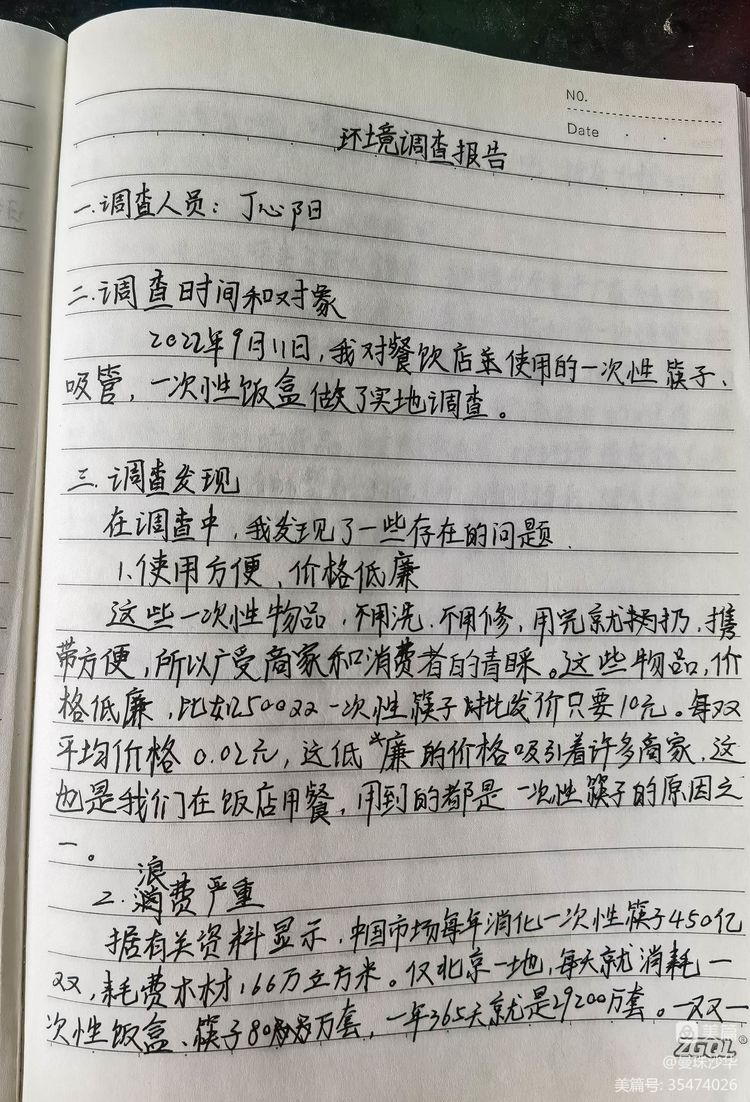 NO.
Date
环境调查报告
一.调查人员：丁心阳
二.调查时间和对象
2022年9月11日，我对餐饮店使用的一次性筷子、
吸管，一次性饭盒做了实地调查。
三.调查发现
在调查中，我发现了一些存在的问题.
1.使用方便、价格低廉
这些一次性物品，不用洗.不用修，用完就扔，携
带方便，所以广受商家和消费者的青睐。这些物品，价
格低廉，比如500双一次性筷子对比发价只要10元。每双
平均价格0.02元，这低廉的价格吸引着许多商家，这
也是我们在饭店用餐，用到的都是一次性筷子的原因之
一。
2.浪费严重
据有关资料显示，中国市场每年消化一次性筷子450亿
双，耗费木材166万立方米。仅北京一地，每天就消耗一
次性饭盒、筷子80万套，一年365天就是29200万套。一双一
美篇
ZGQL®
@曼珠沙华
美篇号: 35474026